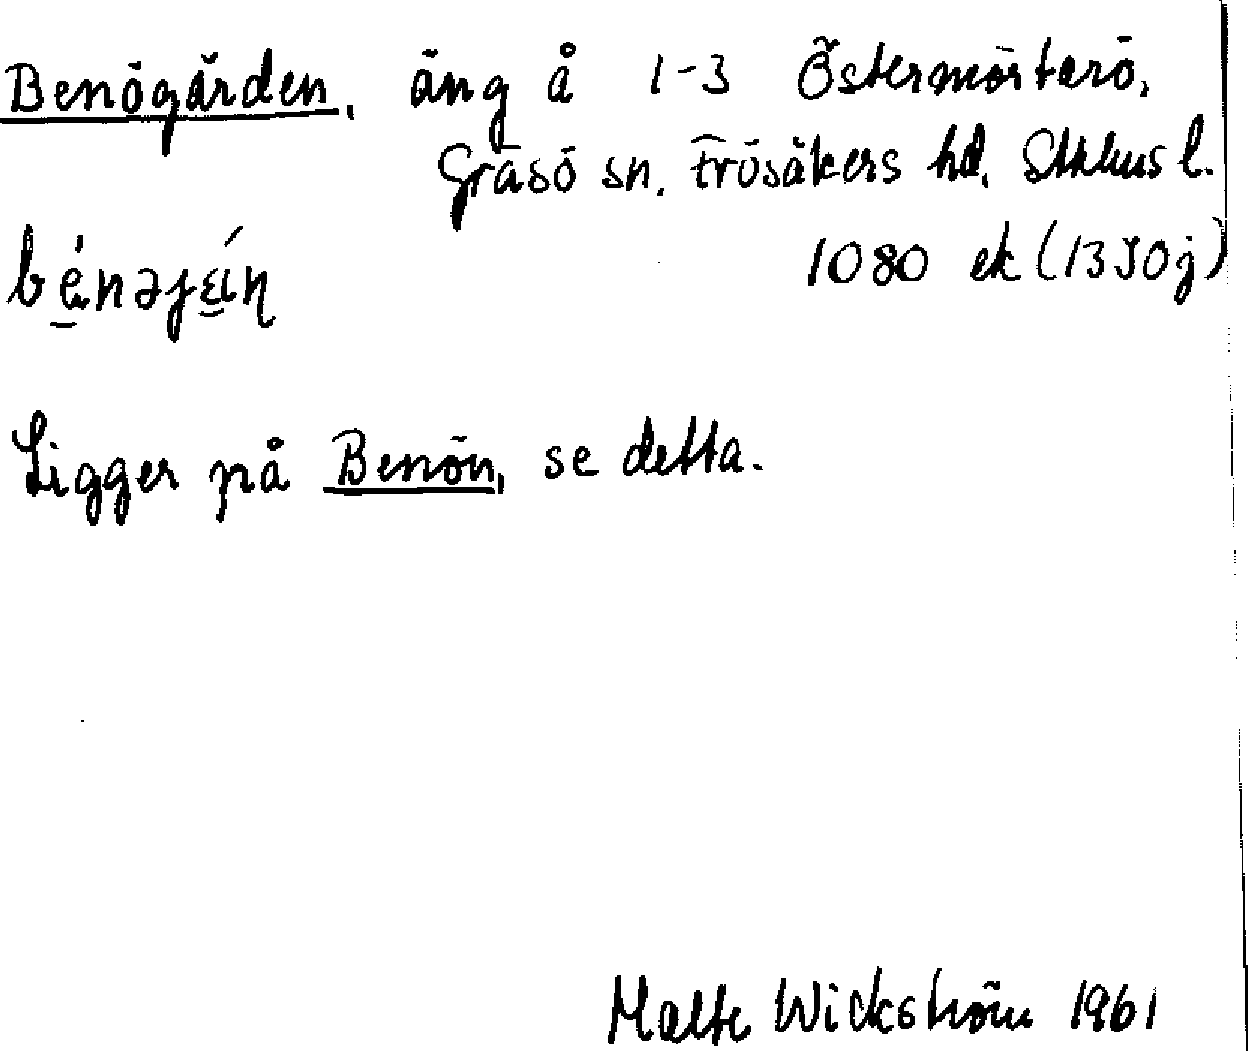 Benögärden, äng å 1-3 Östermörtarö,
Gräsö sn. Frösåkers hd. Sthlms l.
1080 ek (1350j)
Ligger på Benön, se detta.
Malte Wickström 1961